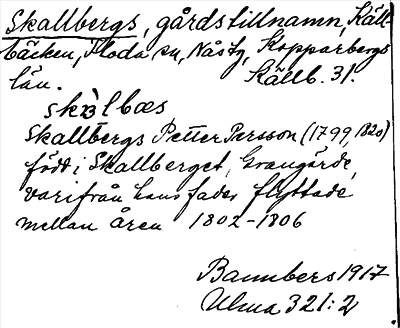 Skallbergs, gårdstillnamn, Käll-
bäcken, Floda sn, Nås tg, Kopparbergs
län. Källb. 31.
skàlbæs
Skallbergs Petter Persson (1799, 1820)
född i Skallberget, Grangärde,
varifrån hans fader flyttade
mellan åren 1802-1806
Bannbers 1917
Ulma 321:2